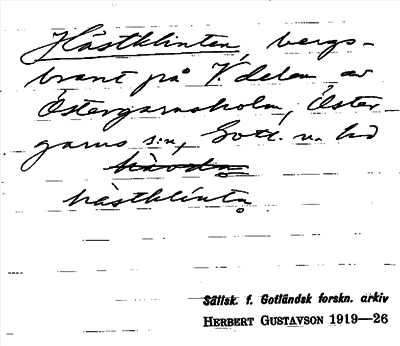 Hästklinten, bergs-
brant på V delen av
Östergarnsholm, Öster-
garns s:n, Gotl. n. hd
hästklintn.
Sällsk. f. Gotländsk forskn. arkiv
HERBERT GUSTAVSON 1919—26